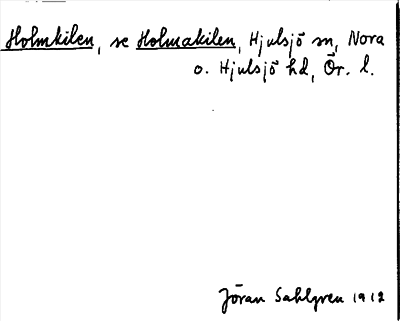 Holmkilen, se Holmakilen, Hjulsjö sn, Nora
o. Hjulsjö hd, Ör. l.
Jöran Sahlgren 1912